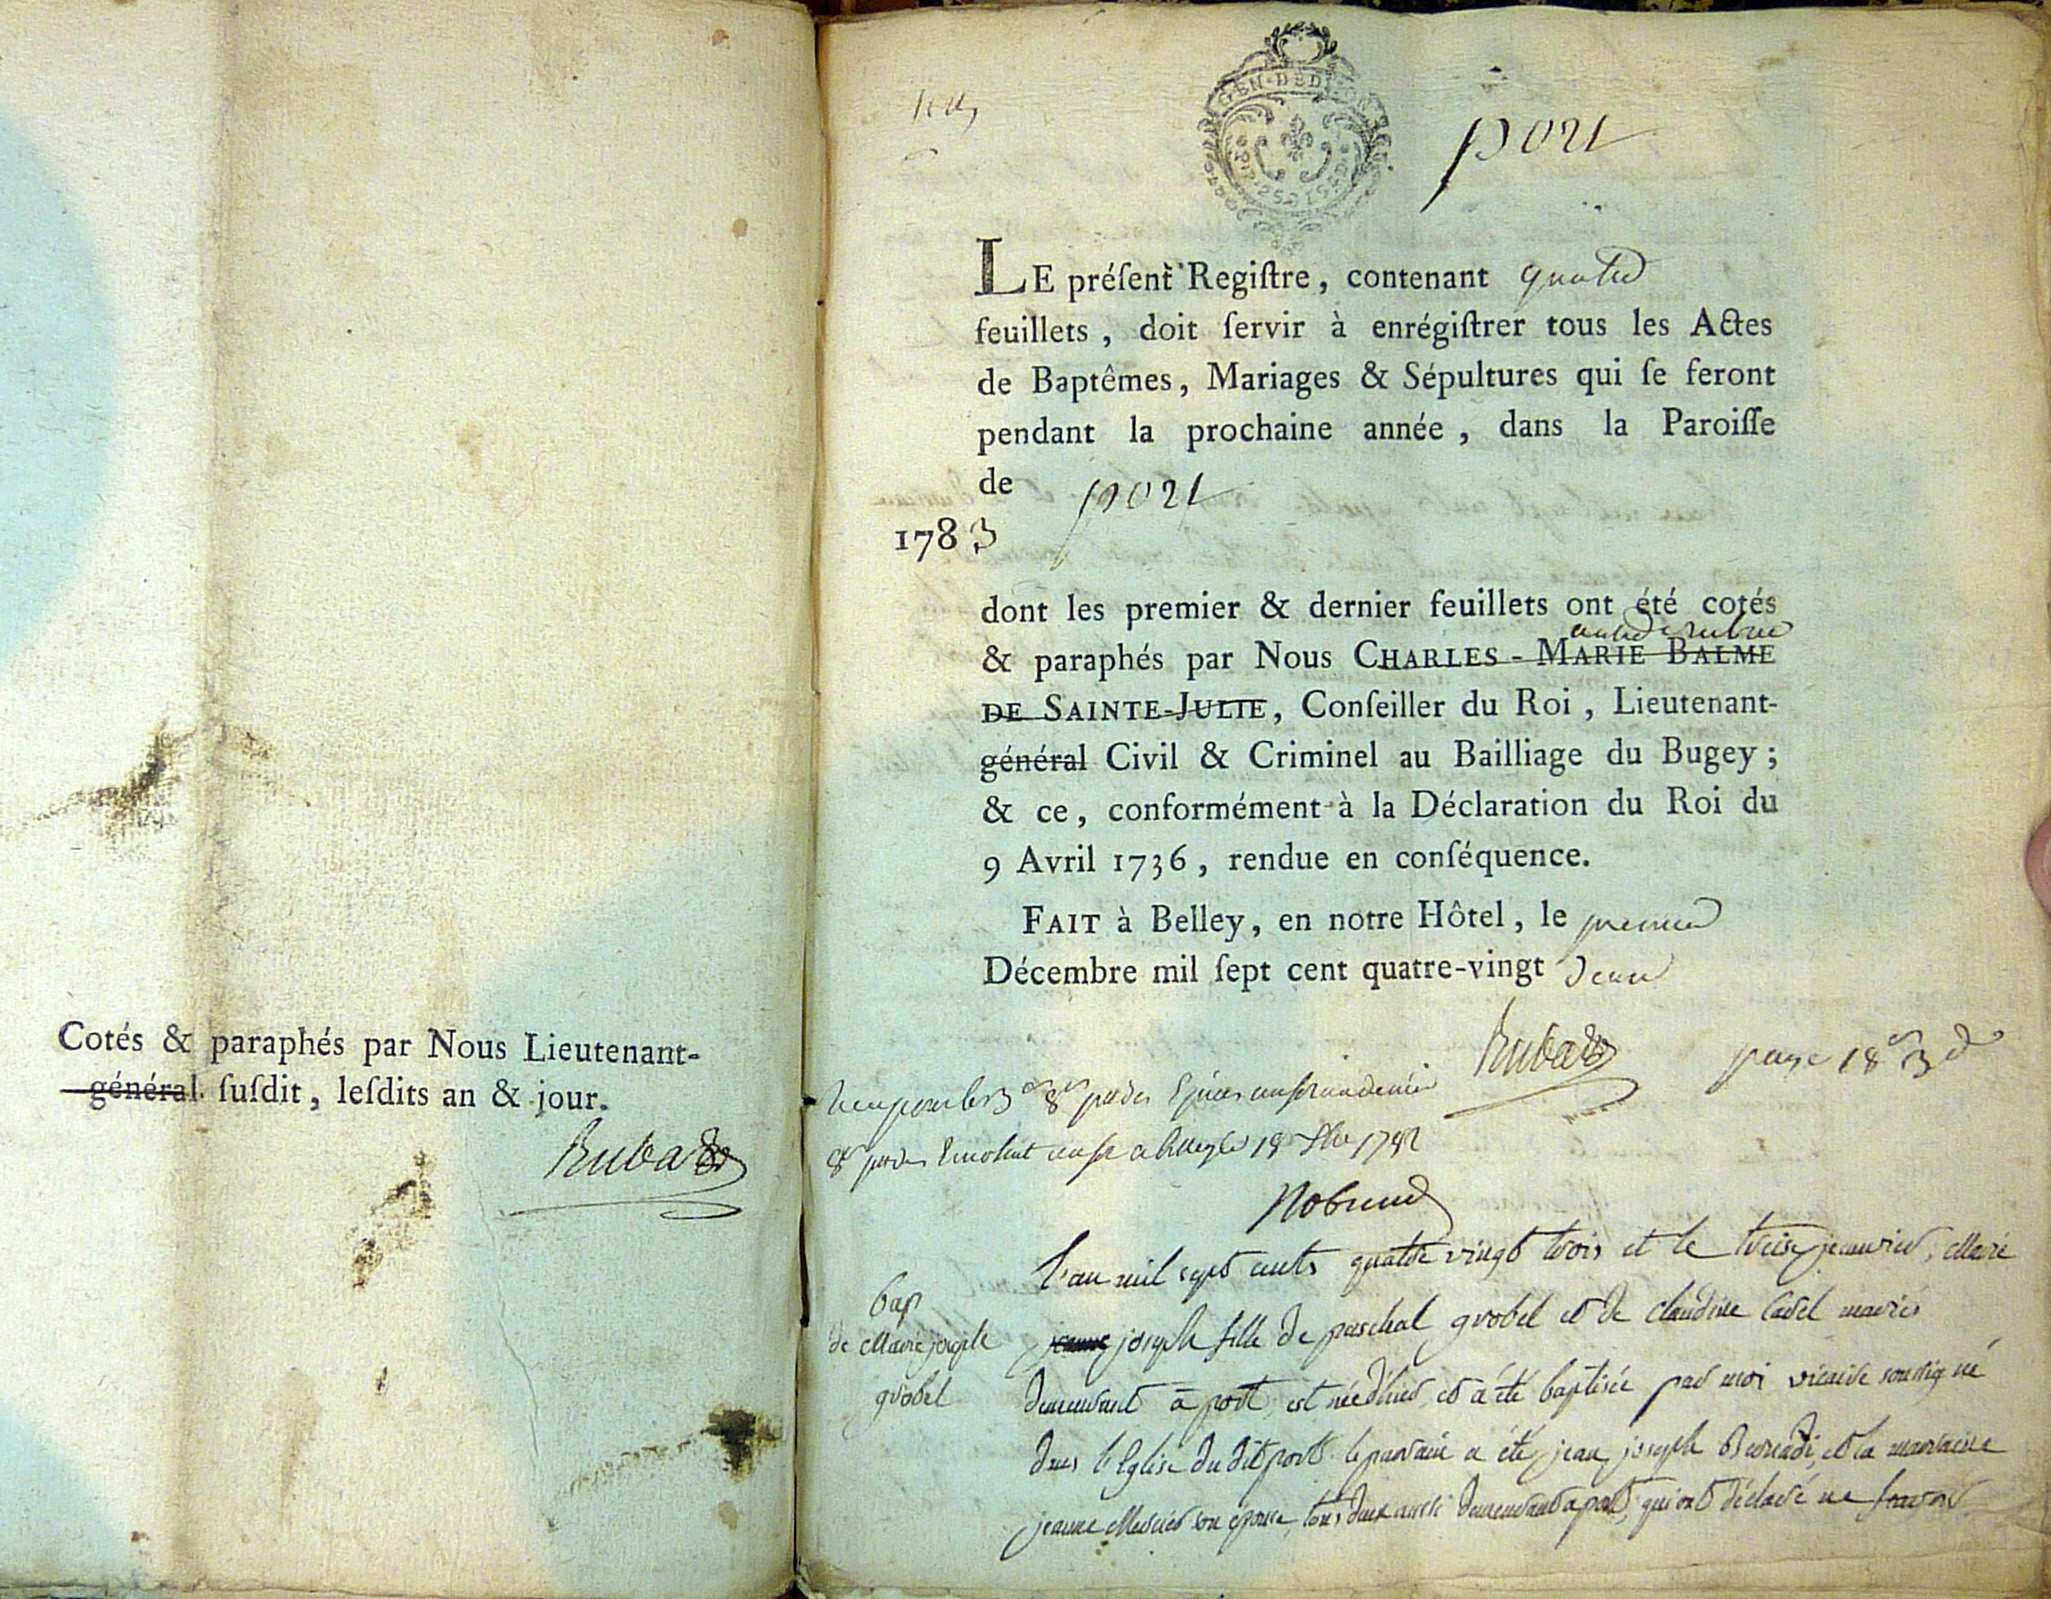 Cotés & paraphés par Nous Lieutenant-
général ſuſdit, leſdits an & jour.
GEN-DE DIJON
port
LE préſent Regiſtre, contenant quatre
feuillets, doit ſervir à enrégiſtrer tous les Actes
de Baptêmes, Mariages & Sépultures qui ſe feront
pendant la prochaine année, dans la Paroiſſe
de port
1783
dont les premier & dernier feuillets ont été cotés
& paraphés par Nous CHARLES-MARIE BALME
DE SAINTE-JULIE, Conſeiller du Roi, Lieutenant-
général Civil & Criminel au Bailliage du Bugey;
& ce, conformément à la Déclaration du Roi du
9 Avril 1736, rendue en conſéquence.
FAIT à Belley, en notre Hôtel, le premier
Décembre mil ſept cent quatre-vingt deux
L'an mil sept cents quatre vingt trois et le treize janvier, Marie
jeanne joseph fille de paschal grobel et de claudine mariés
demeurant à port, est née d'hier, et a été baptisée par moi vicaire soussigné
dans l'Eglise du dit port. le parrain a été jean joseph et la marraine
jeanne son épouse, tous deux aussi demeurant à port, qui ont déclaré ne savoir
bap
de Marie joseph
grobel